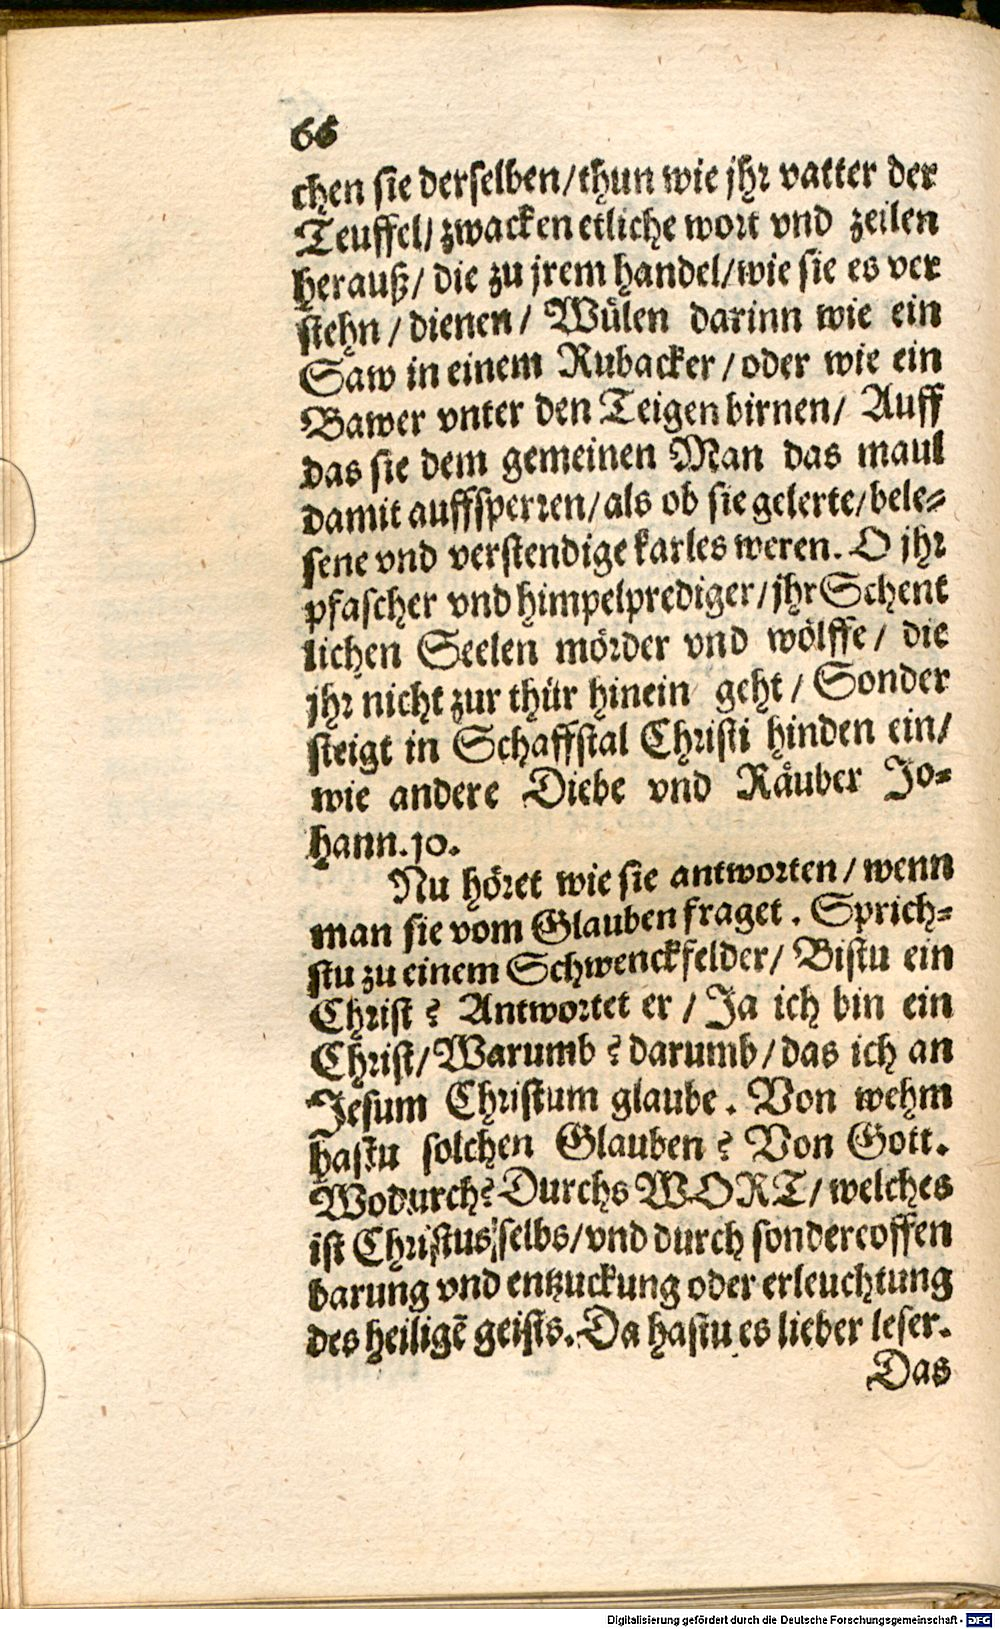 66
chen sie derselben/thun wie jhr vatter der
Teuffel/ zwacken etliche wort vnd zeilen
herauß/ die zu jrem handel/wie sie es ver
stehn / dienen/ Wülen darinn wie ein
Saw in einem Rubacker / oder wie ein
Bawer vnter den Teigen birnen/ Auff
das sie dem gemeinen Man das maul
damit auffsperren/als ob sie gelerte/bele-
sene vnd verstendige karles weren. O jhr
pfascher vnd himpelprediger/jhr Schent
lichen Seelen mörder vnd wölffe/ die
jhr nicht zur thür hinein geht / Sonder
steigt in Schaffstal Christi hinden ein/
wie andere Diebe vnd Räuber Jo-
hann.10.
Nu höret wie sie antworten / wenn
man sie vom Glauben fraget. Sprich-
stu zu einem Schwenckfelder/ Bistu ein
Christ? Antwortet er / Ja ich bin ein
Christ/ Warumb? darumb/das ich an
Jesum Christum glaube. Von wehm
hastu solchen Glauben? Von Gott.
Wodurch? Durchs WORT/ welches
ist Christus selbs/vnd durch sondereoffen
barung vnd entzuckung oder erleuchtung
des heiligē geists. Da hastu es lieber leser.
Das
Digitalisierung gefördert durch die Deutsche Forschungsgemeinschaft - DFG